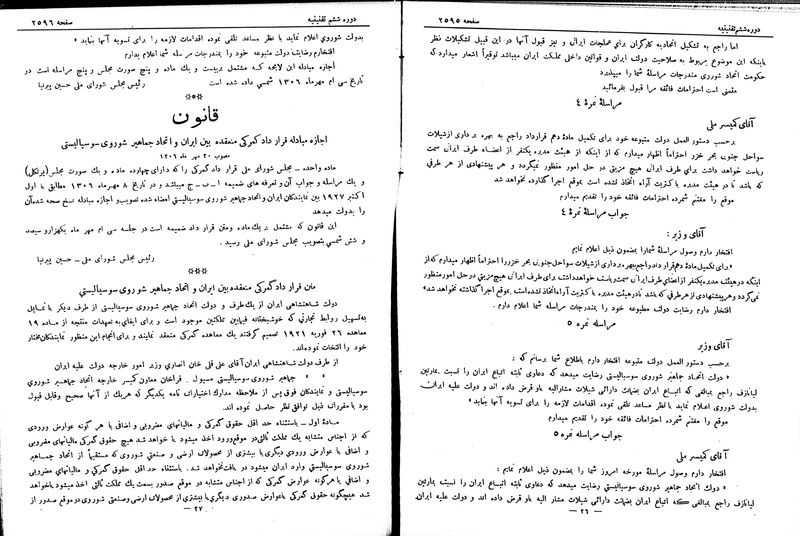 دوره ششم تقنینیه
صفحه ۲۵۹۵
اما راجع به تشکیل اتحادیه کارگران برای عملجات ایرانی و نیز قبول آنها در این قبیل تشکیلات نظر
باینکه این موضوع مربوط به صلاحیت دولت ایران و قوانین داخلی مملکت ایران میباشد توقیراً اشعار میدارد که
حکومت اتحاد شوروی مندرجات مراسلۀ شما را میپذیرد
متمنی است احترامات فائقه مرا قبول بفرمائید
مراسلۀ نمره ٤
آقای کمیسر ملی
برحسب دستور العمل دولت متبوعه خود برای تکمیل مادۀ دهم قرارداد راجع به بهره برداری از شیلات
سواحل جنوبی بحر خزر احتراماً اظهار میدارم که از اینکه از هیئت مدیره یکنفر از اعضاء طرف ایرانی سمت
ریاست خواهد داشت برای طرف ایرانی هیچ مزیتی در حل امور منظور نمیگردد و هر پیشنهادی از هر طرفی
که باشد تا در هیئت مدیره با کثریت آراء اتخاذ نشده است بموقع اجرا گذارده نخواهد شد
موقع را مغتنم شمرده احترامات فائقه خود را تقدیم میدارم
جواب مراسلۀ نمره ٤
آقای وزیر :
افتخار دارم وصول مراسلۀ شما را بمضمون ذیل اعلام نمایم
« برای تکمیل مادۀ دهم قرارداد راجع ببهره برداری از شیلات سواحل جنوبی بحر خزر را احتراماً اظهار میدارم که از
اینکه در هیئت مدیره یکنفر از اعضای طرف ایرانی سمت ریاست خواهد داشت برای طرف ایرانی هیچ مزیتی در حل امور منظور
نمیگردد و هر پیشنهادی از هر طرفی که باشد تا در هیئت مدیره با کثریت آراء اتخاذ نشده است بموقع اجرا گذارده نخواهد شد»
افتخار دارم رضایت دولت مطبوعه خود را بمندرجات مراسله شما اعلام دارم .
مراسله نمره ٥
آقای وزیر
برحسب دستور العمل دولت متبوعه افتخار دارم باطلاع شما برسانم که :
« دولت اتحاد جماهیر شوروی سوسیالیستی رضایت میدهد که دعاوی ثابته اتباع ایران را نسبت بمارتین
لیانازف راجع بمبالغی که اتباع ایران بضمانت دارائی شیلات مشارالیه باو قرض داده اند و دولت علیه ایران
بدولت شوروی اعلام نماید با نظر مساعد تلقی نموده اقدامات لازمه را برای تسویه آنها بنماید »
موقع را مغتنم شمرده احترامات فائقه خود را تقدیم میدارم
جواب مراسله نمره ٥
آقای کمیسر ملی
افتخار دارم وصول مراسله مورخه امروز شما را بمضمون ذیل اعلام نمایم :
« دولت اتحاد جماهیر شوروی سوسیالیستی رضایت میدهد که دعاوی ثابته اتباع ایران را نسبت بمارتین
لیانازف راجع بمبالغی که اتباع ایران بضمانت دارائی شیلات مشار الیه باو قرض داده اند و دولت علیه ایران
— ٢٦ —
دوره ششم تقنینیه
صفحه ۲۵۹۶
بدولت شوروی اعلام نماید با نظر مساعد تلقی نموده اقدامات لازمه را برای تسویه آنها بنماید »
افتخارم رضایت دولت متبوعه خود را بمندرجات مراسله شما اعلام بدارم
اجازه مبادله این لایحه که مشتمل بربیست و یك ماده و پنج صورت مجلس و پنج مراسله است در
تاریخ سی ام مهرماه ۱۳۰٦ شمسی داده شده است
رئیس مجلس شورای ملی حسین پیرنیا
قانون
اجازه مبادله قرارداد گمرکی منعقده بین ایران و اتحاد جماهیر شوروی سوسیالیستی
مصوب ۳۰ مهر ماه ۱۳۰٦
ماده واحده – مجلس شورای ملی قرار داد گمرکی را که دارای چهارده ماده و یك صورت مجلس (پرتکل)
و یك مراسله و جواب آن و تعرفه های ضمیمه ا – ب – ج میباشد و در تاریخ ۸ مهرماه ۱۳۰٦ مطابق با اول
اکتبر ۱۹۲۷ بین نمایندگان ایران و اتحاد جماهیر شوروی سوسیالیستی امضاء شده تصویب و اجازه مبادله نسخ صحه شده آن
را بدولت میدهد
این قانون که مشتمل بر یك ماده ومتن قرار داد ضمیمه است در جلسه سی ام مهر ماه یکهزارو سیصد
و شش شمسی بتصویب مجلس شورای ملی رسید .
رئیس مجلس شورای ملی – حسین پیرنیا
متن قرار داد گمرکی منعقده بین ایران و اتحاد جماهیر شوروی سوسیالیستی
دولت شاهنشاهی ایران از یك طرف و دولت اتحاد جماهیر شوروی سوسیالیستی از طرف دیگر با تمایل
به تسهیل روابط تجارتی که خوشبختانه فیمابین مملکتین موجود است و برای ایفای به تعهدات منتجه از ماده ۱۹
معاهده ۲٦ فوریه ۱۹۲۱ تصمیم گرفتند یك معاهده گمرکی منعقد نمایند و برای انجام این منظور نمایندگان مختار
خود را انتخاب نموده اند.
از طرف دولت شاهنشاهی ایران آقای علی قلی خان انصاری وزیر امور خارجه دولت علیه ایران
» » جماهیر شوروی سوسیالیستی مسیول . قراخان معاون کمیسر خارجه اتحاد جماهیر شوروی
سوسیالیستی و نمایندگان فوق پس از ملاحظه مدارك اختیارات نامه یکدیگر که هر یك از آنها صحیح وقابل قبول
بود با مقررات ذیل توافق نظر حاصل نموده اند.
مادۀ اول – باستثناء حد اقل حقوق گمرکی و مالیاتهای مضروبی و اضافی یا هر گونه عوارض ورودی
که از اجناس متشابه یك مملکت ثالثی در موقع ورود اخذ میشود یا خواهد شد هیچ حقوق گمرکی مالیاتهای مضروبی
و اضافی یا عوارض ورودی دیگری یا بیشتری از محصولات ارضی و صنعتی شوروی که مستقیماً از اتحاد جماهیر
شوروی سوسیالیستی وارد ایران میشود دریافت نخواهد شد. باستثناء حد اقل حقوق گمرکی و مالیاتهای مضروبی
و اضافی یا هرگونه عوارض گمرکی که از اجناس متشابه در موقع صدور بسمت یك مملکت ثالثی اخذ میشود یا خواهد
شد هیچگونه حقوق گمرکی یا عوارض صدوری دیگری یا بیشتری از محصولات ارضی وصنعتی شوروی در موقع صدور از
— ٢٧ —